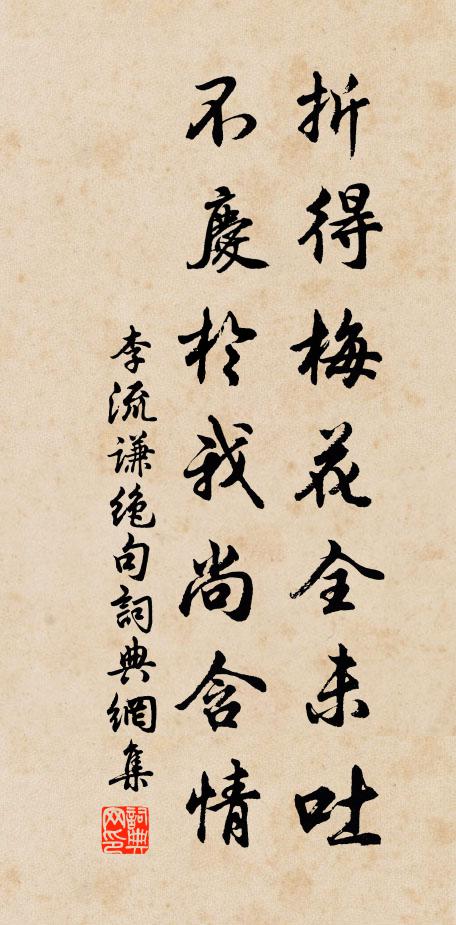 折得梅花全未吐
不慶於我尚含情
李流謙絶句詞典網集
詞典网印